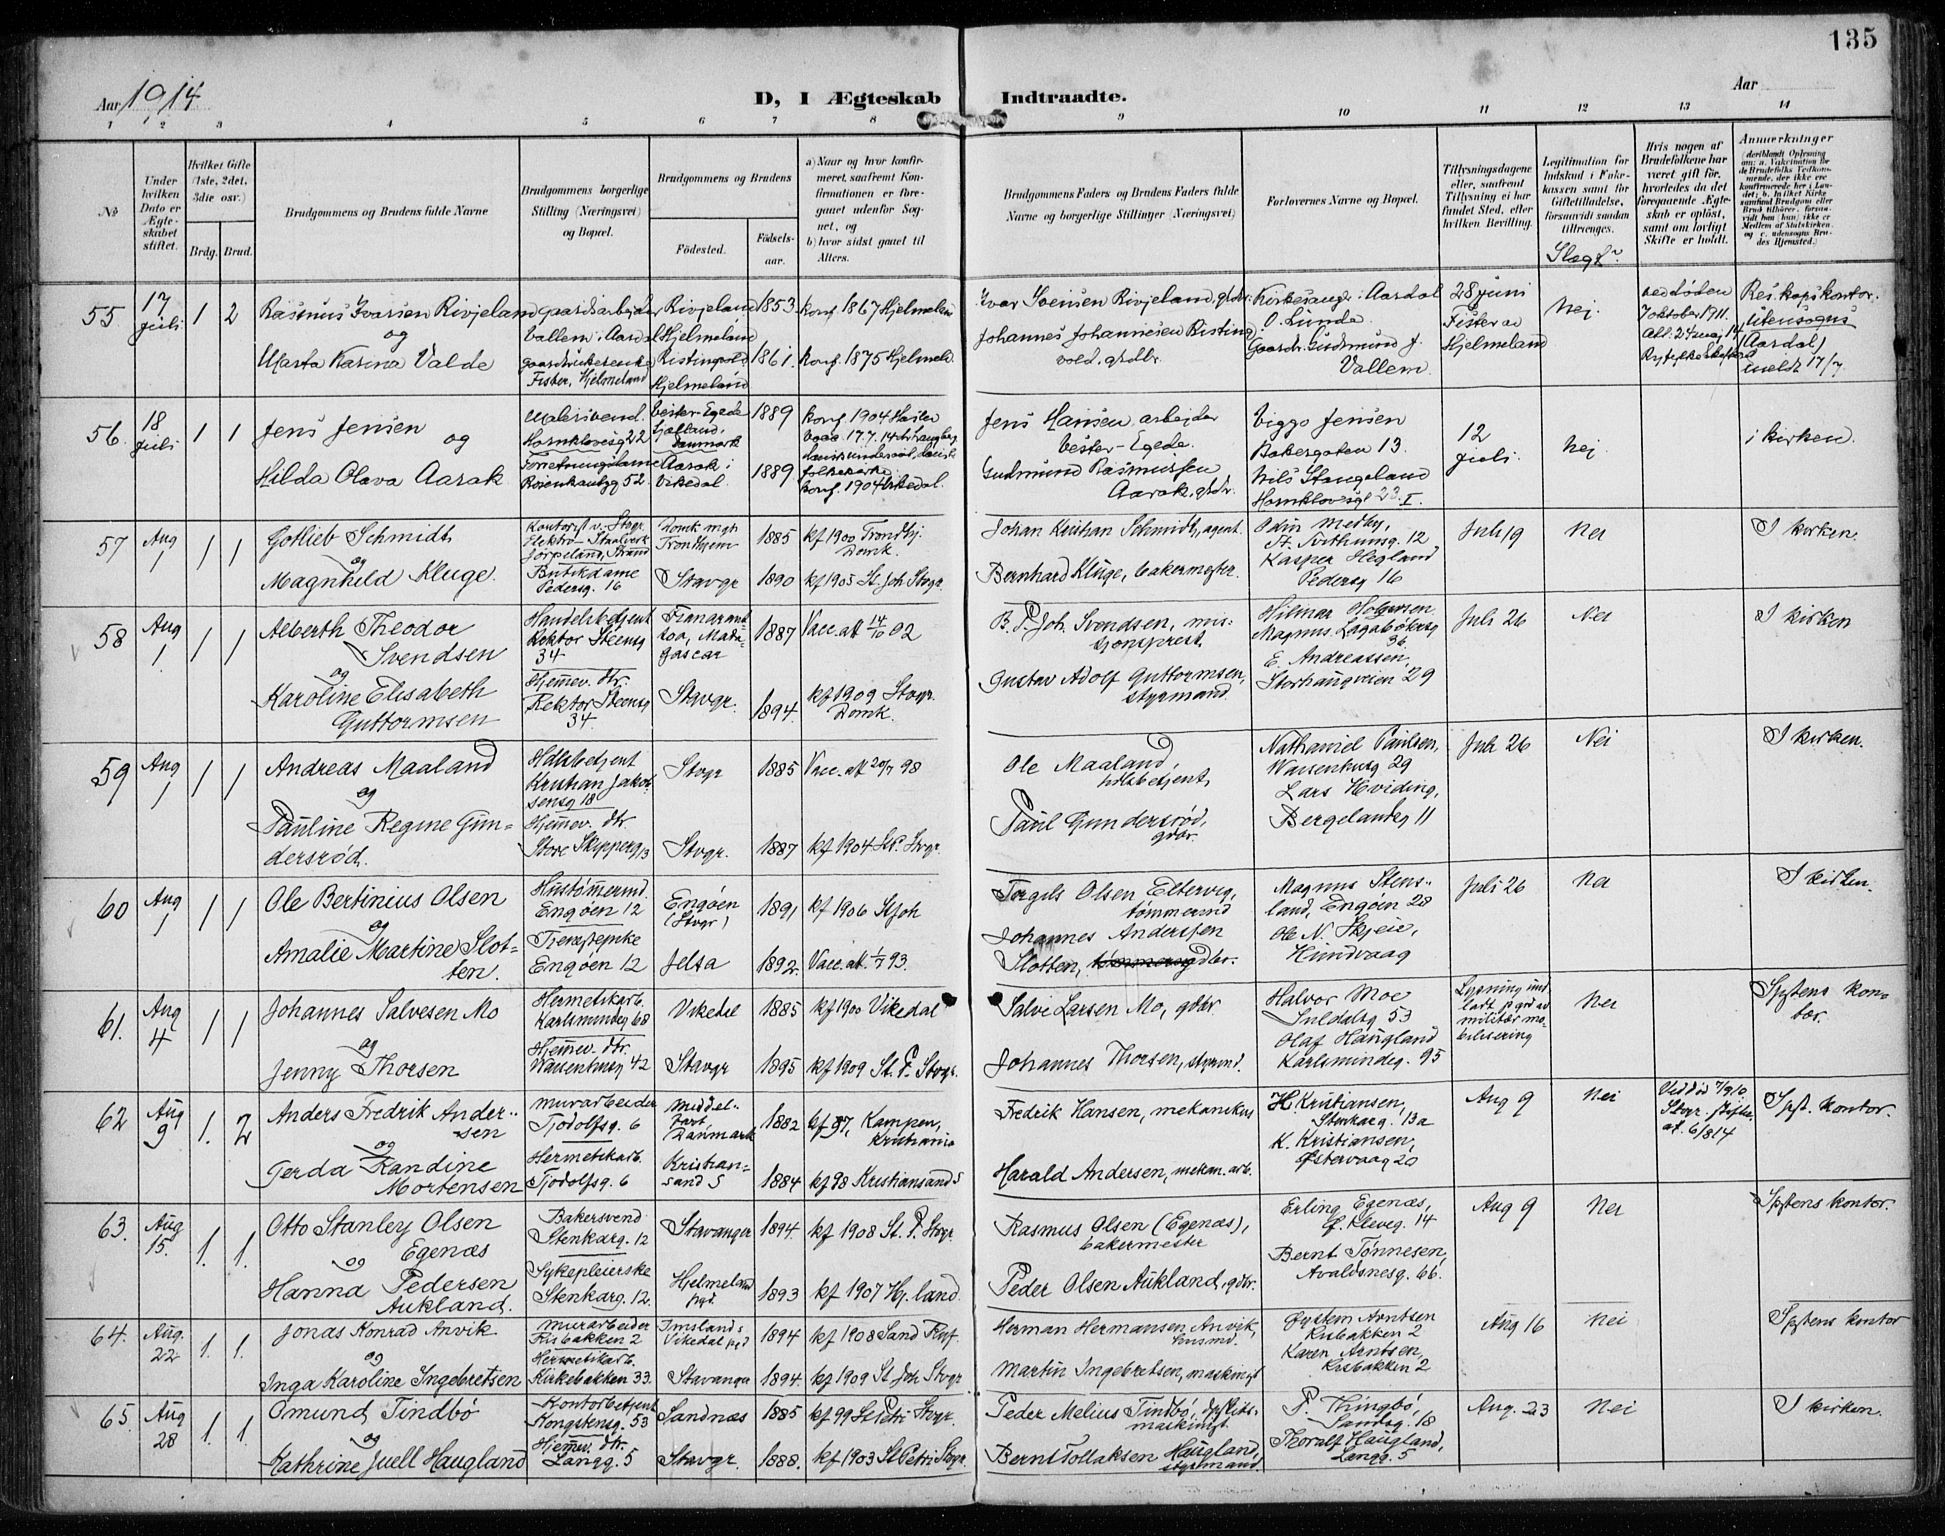 135
Aar 1914
D, I Ægteskab Indtraadte.
Aar
1 2 3 4 5 6 7 8 9 10 11 12 13 14
No
Under hvilken Dato er Ægteskabet stiftet.
Hvilket Gifte (1ste, 2det, 3die osv.)
Brdg. Brud.
Brudgommens og Brudens fulde Navne
Brudgommens borgerlige Stilling (Næringsvei) og Bopæl.
Brudgommens og Brudens
Fødested.
Fødselsaar.
a) Naar og hvor konfirmeret, saafremt Konfirmationen er foregaaet udenfor Sognet, og
b) hvor sidst gaaet til Alters.
Brudgommens Faders og Brudens Faders fulde Navne og borgerlige Stillinger (Næringsvei)
Forlovernes Navne og Bopæl.
Tillysningsdagene eller, saafremt Tillysning ei har fundet Sted, efter hvilken Bevilling.
Legitimation for Indskud i Enkekassen samt for Giftetilladelse, forsaavidt saadan tiltrænges.
Hvis nogen af Brudefolkene har været gift før, hvorledes da det foregaaende Ægteskab er opløst, samt om lovligt Skifte er holdt.
Anmerkninger
55 17 Juli 1 2
Rasmus Ivarsen Rivjeland
og
Marta Karina Valde
gaardsarbejder
Vallem i Aardal
gaardbrukerenke
Fister, Hjelmeland
Rivjeland
Hjelmeland
Hjelmeland
1853
1861.
konf 1867 Hjelmeland
konf 1875 Hjelmeld.
Ivar Svensen Rivjeland, gbdr.
Johannes Johannesen Risting
vold. gbdbr.
Kirkesangr. i Aardal
O. Lunde
Gaardr. Gudmund J.
Vallem.
28 juni
Fister av
Hjelmeland
Nej.
ved døden
7 oktober 1911.
Res. kaps kontor.
(Aardal)
meldt 17/7
56. 18 Juli 1 1
Jens Jensen
og
Hilda Olava Aarak
Malersvend.
Hornklovesg 22
Forretningsdame
Rosenkrantzg 52.
Vester-Egede
Sjælland,
Danmark
Aarak i
Vikedal
1889
1889
konf. 1904 Haslev
folkekirke
konf. 1904 Vikedal.
Jens Hansen arbejder
Vester-Egede.
Gudmund Rasmussen
Aarak, gbdr.
Viggo Jensen
Bakergaten 13.
Nils Stangeland
Hornklovesgt 23. I.
12
Juli
Nej
i kirken.
57 Aug 1 1 1
Gotlieb Schmidt
og
Magnhild Kluge.
Kontorist v. Stvgr.
Elektro-Staalverk
Jørpeland, Strand
Butikdame
Pedersg. 16
Domk mgh
Tronhjem
Stavgr
1885
1890
kf 1900 Trondhj.
Domk.
kf 1905 St. Joh Stvgr.
Johan Kristian Schmidt, agent.
Bernhard Kluge, bakermester.
Odin Medby,
St. Svithunsg. 12
Kasper Hegland
Pedersg 16
Juli 19
Nei
I kirken.
58 Aug 1 1 1
Alberth Theodor
Svendsen
og
Karoline Elisabeth
Guttormsen
Handelsbetjent
Rektor Steensg
34
Hjemev. dtr.
Rektor Steensg
34.
Madagascar
Stavgr.
1887
1894.
Vacc. att 14/10 02
kf 1909 Stvgr.
Domk.
B. P. Joh. Svendsen, mis-
sjonsprest
Gustav Adolf Guttormsen,
styrmand
Hilmar Holgersen
Magnus Lagabøtersg
36
E. Andreassen,
Storhaugveien 29
Juli 26
Nei
I kirken
59 Aug 1 1 1
Andreas Maaland
og
Pauline Regine Gun-
dersrød.
Hdlsbetjent
Kristian Jakob-
sensg 18
Hjemev. dtr.
Store Skipperg 13
Stvgr
Stvgr.
1885
1887
Vacc. att 20/7 98
kf 1904 St. P. Stvgr.
Ole Maaland,
hdlsbetjent
Paul Gundersrød,
gdbr.
Nathaniel Paulsen,
Waisenhusg 29
Lars Hviding,
Bergelandsg 11
Juli 26
Nei
I kirken.
60 Aug 1 1 1
Ole Bertinius Olsen
og
Amalie Martine Slot-
ten.
Hustømermd.
Engøen 12
Tjenestepike
Engøen 12
Engøen
(Stvgr)
Jelsa
1891
1892.
kf 1906 St Joh
Vacc. att. 1/7 93.
Torgils Olsen Eltervig,
tømmermd
Johannes Anderssen
Slotten, gdbr.
Magnus Stens-
land, Engøen 28
Ole N. Skjeie,
Hundvaag
Juli 26
Nei
I kirken.
61. Aug 4 1 1
Johannes Salvesen Mo
og
Jenny Thorsen
Hermetikarb.
Karlsmindeg 68
Hjemev. dtr.
Waisenhusg 42
Vikedal
Stavgr
1885
1895
kf 1900 Vikedal
kf 1909 St. P. Stvgr.
Salve Larsen Mo, gdbr.
Johannes Thorsen, styrmd.
Halvor Moe
Suldalsg 53
Olaf Haugland
Karlsmindeg. 95
Lysning und
ladt p. grd av
militær mo-
bilisering
Nei
Spstens kon-
tor.
62 Aug 9 1. 2
Anders Fredrik Ander-
sen
og
Gerda Kandine
Mortensen
Murarbeider
Tjodolfsg. 6
Hermetikarb.
Tjodolfsg. 6
Middel-
fart
Danmark
Kristian-
sand S
1882
1884
kf 97, Kampen,
Kristiania
kf 98 Kristiansand S
Fredrik Hansen, mekanikus
Harald Andersen, mekan. arb.
H Kristiansen,
Stenkarg. 13a
K. Kristiansen,
Østervaag 20
Aug 9
Nei
Ved død 7/9 10.
Stvgr. skifte-
at. 6/8 14
Spst. kontor.
63. Aug 15. 1. 1.
Otto Stanley Olsen
Egenæs
og
Hanna Pedersen
Aukland.
Bakersvend
Stenkarg. 12
Sykepleierske
Stenkarg. 12.
Stavanger
Hjelmeland
pgd.
1894.
1893
kf 1908 St. P. Stvgr.
kf 1907 Hj.land
Rasmus Olsen (Egenæs),
bakermester
Peder Olsen Aukland, gdbr.
Erling Egenæs,
Ø. Kleveg. 14
Bernt Tønnesen,
Avaldsnesg. 66.
Aug 9
Nei
Spstens kontor.
64. Aug. 22 1. 1.
Jonas Konrad Anvik
og
Inga Karoline Ingebretsen
Murarbeider
Risbakken 2
Hermetikarb.
Kirkebakken 33.
Imsland,
Vikedal pgd
Stavanger
1894
1894.
kf 1908 Sand Ryf.
kf 1909 St. Joh Stvgr.
Herman Hermansen Anvik,
husmd.
Martin Ingebretsen, maskinist
Øystein Arntsen
Risbakken 2
Karen Arntsen,
Risbakken 2
Aug 16
Nei
Spstens kontor
65. Aug 28 1. 1.
Omund Tindbø
og
Kathrine Juell Haugland
Kontorbetjent
Kongstensg. 53
Hjemev. dtr.
Langg. 5
Sandnæs
Stavgr.
1885
1888.
kf 99 St Petri Stvgr.
kf 1903 St Petri Stvgr.
Peder Melius Tindbø,
maskinist
Bernt Tollaksen Haugland,
styrmand.
P. Thingbø,
Sandsg. 18
Thoralf Haugland,
Langg. 5
Aug. 23
Nei
I kirken.